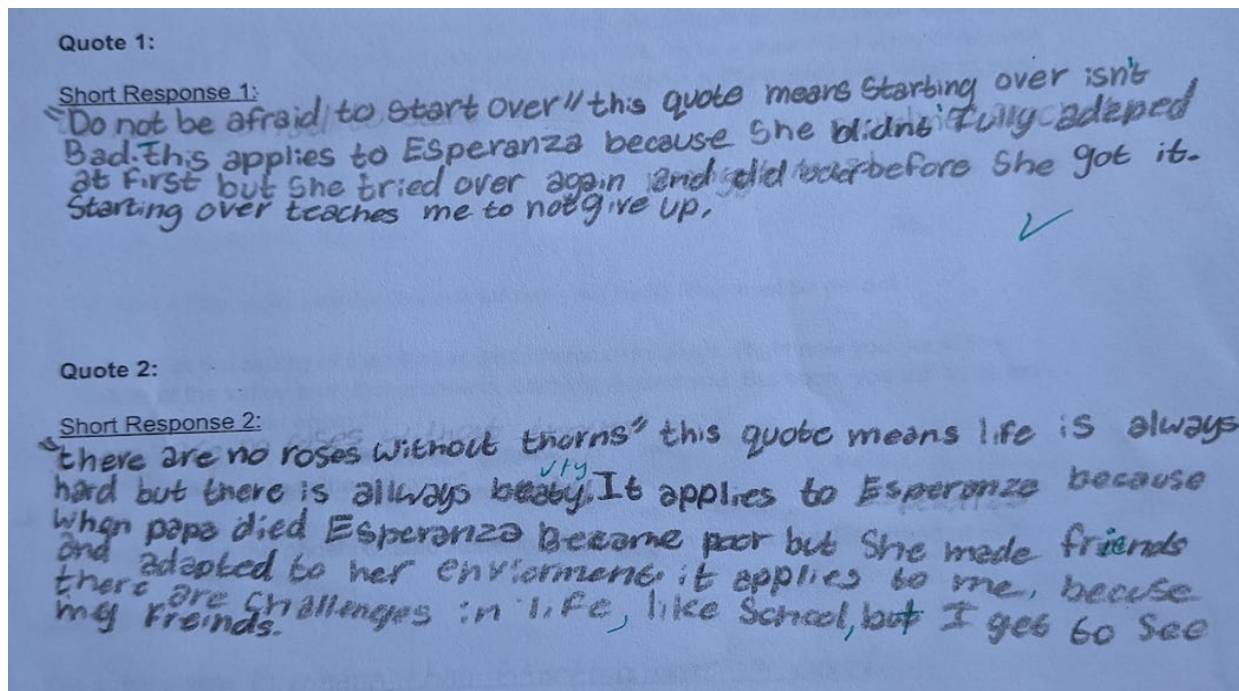 Quote 1:
Short Response 1:
"Do not be afraid to start over" this quote means Starting over isn't
Bad. This applies to Esperanza because She didnt fully adeped
at First but She tried over again and did before She got it.
Starting over teaches me to not give up.
Quote 2:
Short Response 2:
"there are no roses without thorns" this quote means life is always
hard but there is allways beauty. It applies to Esperanza because
When papa died Esperanza Became poor but She made friends
and adapted to her enviorment. it applies to me, becuse
there are challenges in life, like School, but I get to See
my Freinds.